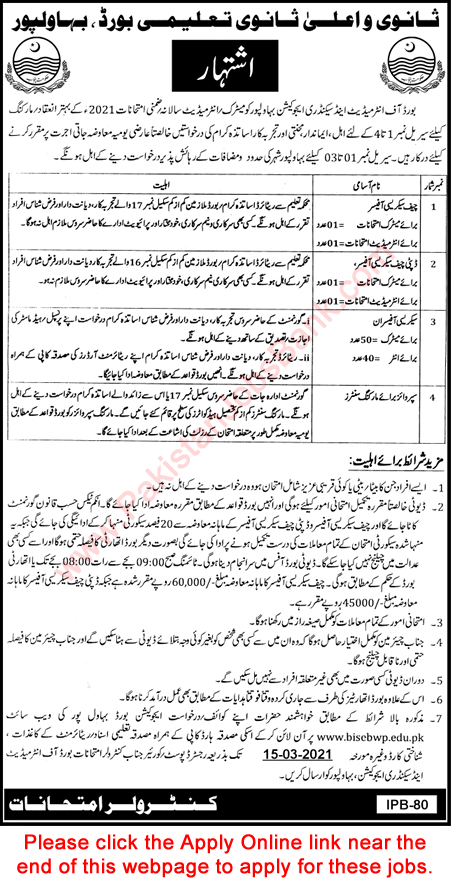 ثانوی و اعلیٰ ثانوی تعلیمی بورڈ، بہاولپور
اشتہار
بورڈ آف انٹرمیڈیٹ اینڈ سیکنڈری ایجوکیشن بہاولپور کو میٹرک/انٹرمیڈیٹ سالانہ ضمنی امتحانات 2021ء کے بہتر انعقاد و مارکنگ
کیلئے سیریل نمبر 1 تا 4 کے لئے اہل، ایماندار، محنتی اور تجربہ کار اساتذہ کرام کی درخواستیں خالصتاً عارضی یومیہ معاوضہ جاتی اجرت پر مقرر کرنے
کیلئے درکار ہیں۔ سیریل نمبر 01 تا 03 کیلئے بہاولپور شہر کی حدود و مضافات کے رہائش پذیر درخواست دینے کے اہل ہونگے۔
نمبر شمار نام آسامی اہلیت
1 چیف سیکریسی آفیسر
برائے میٹرک امتحانات =01 عدد
برائے انٹرمیڈیٹ امتحانات =01 عدد
محکمہ تعلیم سے ریٹائرڈ اساتذہ کرام/بورڈ ملازمین کم از کم سکیل نمبر 18 والے تجربہ کار، دیانت دار اور فرض شناس افراد
تقرر کے اہل ہونگے۔ کسی بھی سرکاری و نیم سرکاری، خودمختار اور پرائیویٹ ادارے کا حاضر سروس ملازم اہل نہ ہوگا۔
2 ڈپٹی چیف سیکریسی آفیسر،
برائے میٹرک امتحانات =01 عدد
برائے انٹرمیڈیٹ امتحانات =01 عدد
محکمہ تعلیم سے ریٹائرڈ اساتذہ کرام/بورڈ ملازمین کم از کم سکیل نمبر 17 والے تجربہ کار، دیانت دار اور فرض شناس افراد
تقرر کے اہل ہونگے۔ کسی بھی سرکاری و نیم سرکاری، خودمختار اور پرائیویٹ ادارے کا حاضر سروس ملازم نہ ہو۔
3 سیکریسی آفیسران
برائے میٹرک =50 عدد
برائے انٹر =40 عدد
i۔ گورنمنٹ کے حاضر سروس تجربہ کار، دیانت دار اور فرض شناس اساتذہ کرام درخواست اپنے پرنسپل/ہیڈ ماسٹر کی
اجازت و تصدیق کے ساتھ دینے کے اہل ہونگے۔
ii۔ ریٹائرڈ تجربہ کار، دیانت دار اور فرض شناس اساتذہ کرام اپنے ریٹائرمنٹ آرڈرز کی مصدقہ کاپی کے ہمراہ
درخواست دینے کے اہل ہونگے۔ انھیں بورڈ قواعد کے مطابق معاوضہ ادا کیا جائیگا۔
4 سپروائزر برائے مارکنگ سنٹرز
گورنمنٹ ادارہ جات کے حاضر سروس سکیل نمبر 17 یا اس سے زائد والے اساتذہ کرام درخواست دینے کے اہل
ہونگے۔ مارکنگ سنٹرز کم از کم تحصیل ہیڈکوارٹرز کی سطح پر قائم کئے جائیں گے۔ مارکنگ سپروائزر کو بورڈ قواعد کے مطابق
یومیہ معاوضہ مکمل طور پر متعلقہ امتحان کے رزلٹ کی اشاعت کے بعد ادا کیا جائے گا۔
مزید شرائط برائے اہلیت:
1۔ ایسے افراد جن کا بیٹا/بیٹی یا کوئی قریبی عزیز شامل امتحان ہو وہ درخواست دینے کے اہل نہ ہیں۔
2۔ ڈیوٹی خالصتاً مقررہ تکمیل امتحانی امور کیلئے ہوگی اور انہیں بورڈ قواعد کے مطابق مقررہ معاوضہ ادا کیا جائے گا۔ انکم ٹیکس حسب قانون گورنمنٹ
کاٹا جائے گا اور چیف سیکریسی آفیسر و ڈپٹی چیف سیکریسی آفیسر کے ماہانہ معاوضہ سے 20 فیصد سیکورٹی منہا کر کے ادائیگی کی جائے گی جبکہ یہ
منہا شدہ سیکورٹی امتحان کے تمام معاملات کی درست تکمیل ہونے پر ادا کی جائے گی بصورت دیگر بورڈ اتھارٹی کا فیصلہ حتمی ہوگا اور اسے کسی بھی
عدالت میں چیلنج نہیں کیا جا سکے گا۔ ڈیوٹی بورڈ آفس میں سرانجام دینا ہوگی۔ ٹائمنگ صبح 09:00 بجے سے رات 08:00 بجے تک یا اتھارٹی
بورڈ کے حکم کے مطابق ہوگی۔ چیف سیکریسی آفیسر کا ماہانہ معاوضہ مبلغ -/60,000 روپے مقرر شدہ ہے جبکہ ڈپٹی چیف سیکریسی آفیسر کا ماہانہ
معاوضہ مبلغ -/45000 روپے مقرر ہے۔
3۔ امتحانی امور کے تمام معاملات کو مکمل صیغہ راز میں رکھنا ہوگا۔
4۔ جناب چیئرمین کو مکمل اختیار حاصل ہوگا کہ وہ ان میں سے کسی بھی شخص کو بغیر کوئی وجہ بتلائے ڈیوٹی سے ہٹا سکیں گے اور جناب چیئرمین کا فیصلہ
حتمی اور ناقابل چیلنج ہوگا۔
5۔ دوران ڈیوٹی کسی صورت میں بھی غیر متعلقہ افراد سے نہیں مل سکیں گے۔
6۔ اس کے علاوہ بورڈ اتھارٹیز کی طرف سے جاری کردہ وقتاً فوقتاً ہدایات کے مطابق بھی عمل درآمد کرنا ہوگا۔
7۔ مذکورہ بالا شرائط کے مطابق خواہشمند حضرات اپنے کوائف/درخواست ایجوکیشن بورڈ بہاول پور کی ویب سائٹ
www.bisebwp.edu.pk پر آن لائن کر کے اسکی مصدقہ ہارڈ کاپی کے ہمراہ مصدقہ تعلیمی اسناد/ریٹائرمنٹ کے کاغذات،
شناختی کارڈ وغیرہ مورخہ 15-03-2021 تک بذریعہ رجسٹرڈ پوسٹ/کورئیر جناب کنٹرولر امتحانات بورڈ آف انٹرمیڈیٹ
اینڈ سیکنڈری ایجوکیشن، بہاولپور کو ارسال کریں۔
کنٹرولر امتحانات
IPB-80
Please click the Apply Online link near the
end of this webpage to apply for these jobs.